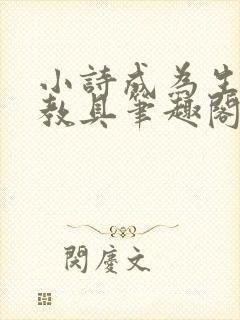 小詩成為生
教具筆趣閣
閔慶文